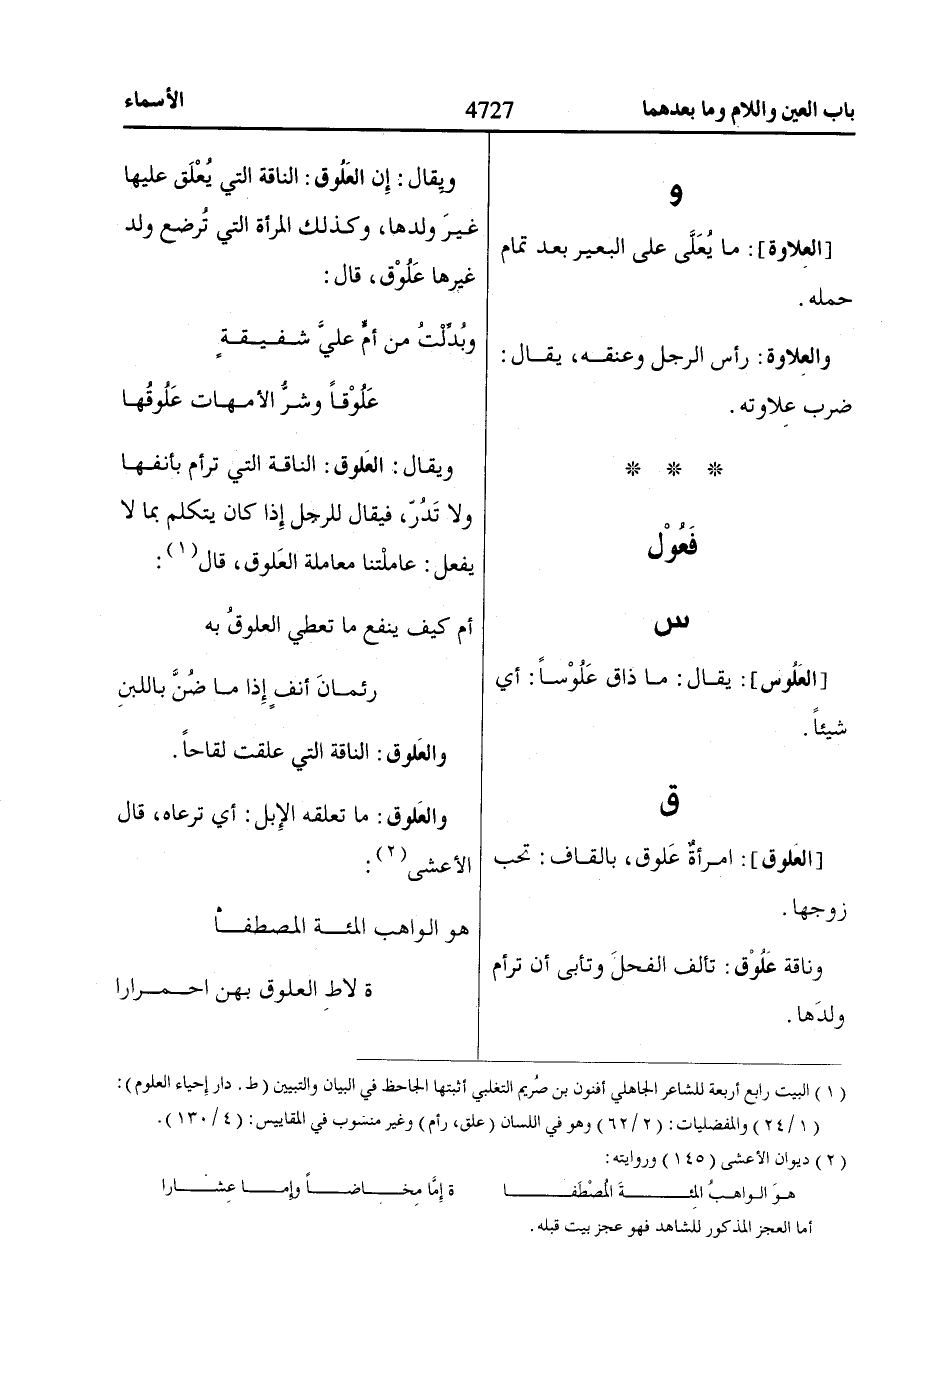 باب العين واللام وما بعدهما
4727
الأسماء
و
[العِلاوة]: ما يُعَلَّى على البعير بعد تمام
حمله.
والعِلاوة: رأس الرجل وعنقه، يقال:
ضرب عِلاوته.
* * *
فَعُوْل
س
[العَلُوس]: يقال: ما ذاق عَلُوْساً: أي
شيئاً.
ق
[العَلوق]: امرأةٌ عَلوق، بالقاف: تحب
زوجها.
وناقة عَلُوْق: تألف الفحلَ وتأبى أن ترأم
ولدَها.
ويقال: إن العَلُوق: الناقة التي يُعْلَق عليها
غيرَ ولدها، وكذلك المرأة التي تُرضع ولد
غيرها عَلُوْق، قال:
وبُدِّلْتُ من أمٍّ عليَّ شفيقةٍ
عَلُوْقاً وشرُّ الأمهات عَلُوقُها
ويقال: العَلوق: الناقة التي ترأم بأنفها
ولا تَدُرّ، فيقال للرجل إذا كان يتكلم بما لا
يفعل: عاملْتنا معاملة العَلوق، قال(١):
أم كيف ينفع ما تعطي العلوقُ به
رئمانَ أنفٍ إذا ما ضُنَّ باللبنِ
والعَلوق: الناقة التي علقت لقاحاً.
والعَلوق: ما تعلقه الإبل: أي ترعاه، قال
الأعشى(٢):
هو الواهب المئة المصطفا
ة لاطِ العلوق بهن احمرارا
(١) البيت رابع أربعة للشاعر الجاهلي أفنون بن صُريم التغلبي أثبتها الجاحظ في البيان والتبيين (ط. دار إحياء العلوم):
(٢٤/١) والمفضليات: (٦٢/٢) وهو في اللسان (علق، رأم) وغير منسوب في المقاييس: (١٣٠/٤).
(٢) ديوان الأعشى (١٤٥) وروايته:
هوَ الواهبُ المئةَ المُصْطَفا ة إمَّا مخاضاً وإما عشارا
أما العجز المذكور للشاهد فهو عجز بيت قبله.